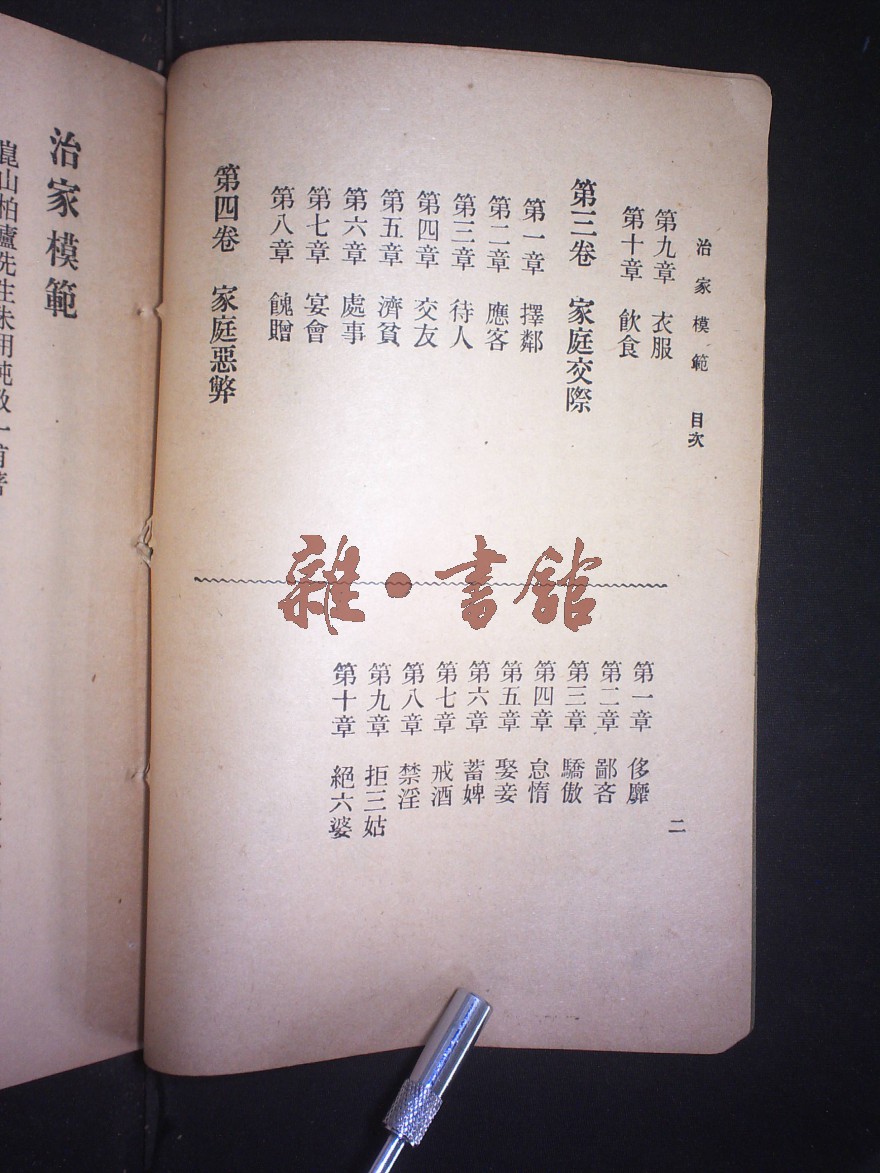 治家模範　目次
第九章　衣服
第十章　飲食
第三卷　家庭交際
第一章　擇鄰
第二章　應客
第三章　待人
第四章　交友
第五章　濟貧
第六章　處事
第七章　宴會
第八章　餽贈
第四卷　家庭惡弊
第一章　侈靡
第二章　鄙吝
第三章　驕傲
第四章　怠惰
第五章　娶妾
第六章　蓄婢
第七章　戒酒
第八章　禁淫
第九章　拒三姑
第十章　絕六婆
二
雜・書館
治家模範
崑山柏廬先生朱用純致一甫著